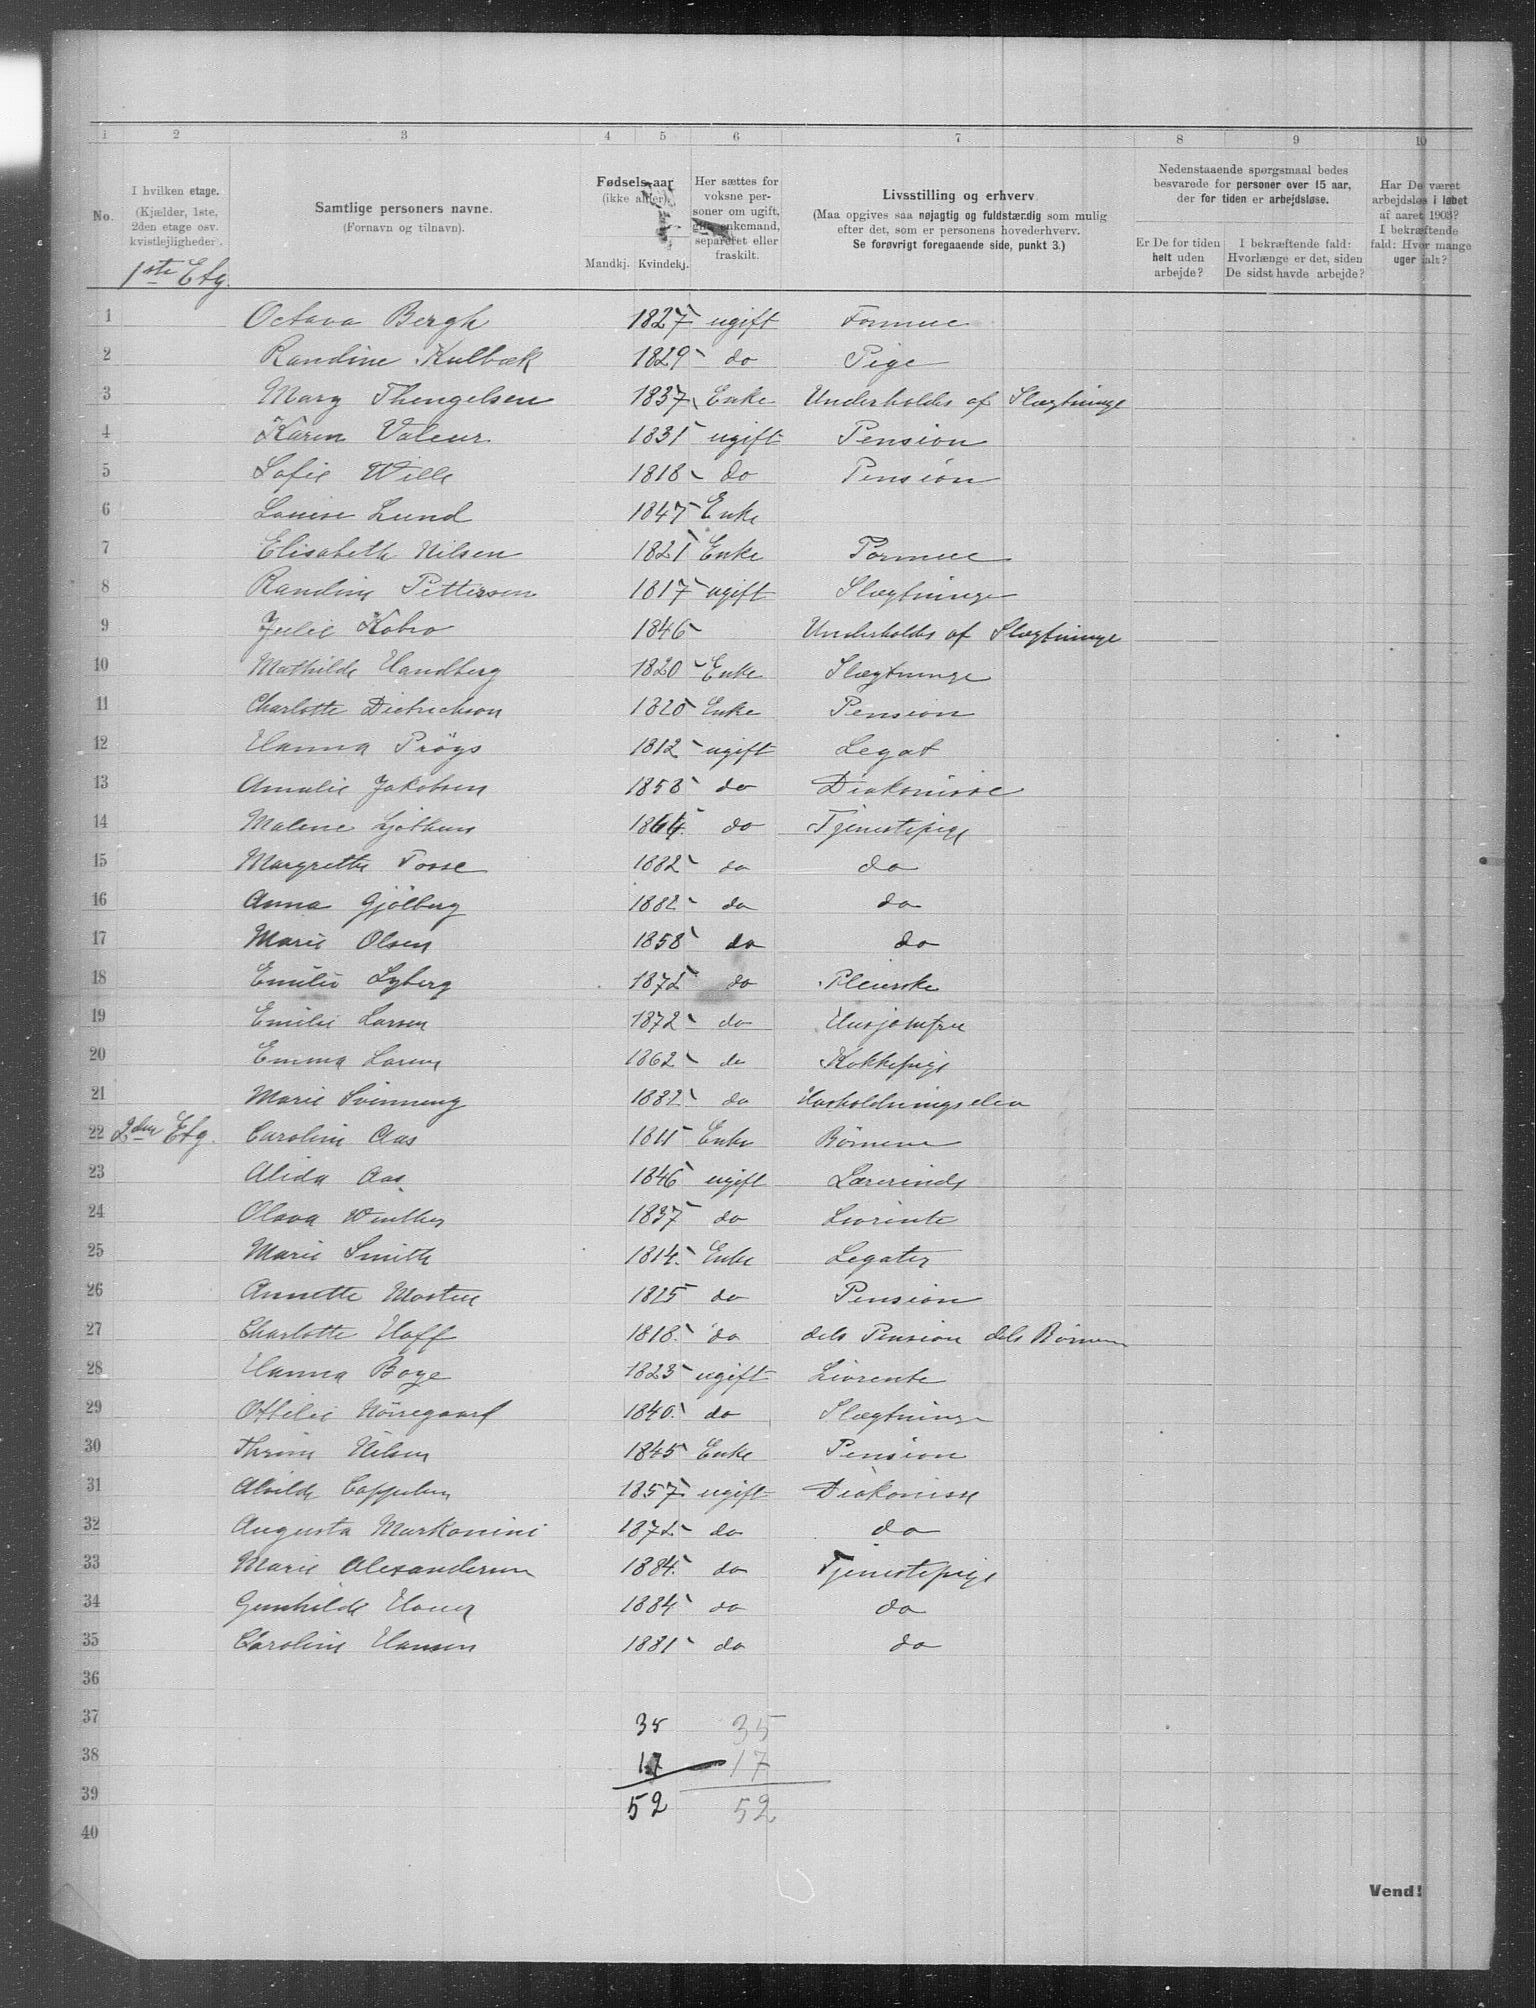 1 2 3 4 5 6 7 8 9 10
No.
I hvilken etage.
(Kjælder, 1ste,
2den etage osv.
kvistlejligheder).
Samtlige personers navne.
(Fornavn og tilnavn).
Fødsels-aar
(ikke alder).
Mandkj. Kvindekj.
Her sættes for
voksne per-
soner om ugift,
gift, enkemand,
separeret eller
fraskilt.
Livsstilling og erhverv
(Maa opgives saa nøjagtig og fuldstændig som mulig
efter det, som er personens hovederhverv.
Se forøvrigt foregaaende side, punkt 3.)
Nedenstaaende spørgsmaal bedes
besvarede for personer over 15 aar,
der for tiden er arbejdsløse.
Er De for tiden
helt uden
arbejde?
I bekræftende fald:
Hvorlænge er det, siden
De sidst havde arbejde?
Har De været
arbejdsløs i løbet
af aaret 1903?
I bekræftende
fald: Hvor mange
uger ialt?
1ste Etg.
1 Octava Bergh 1827 ugift Formue
2 Randine Kulbæk 1829 do Pige
3 Mary Thengelsen 1837 Enke Underholdes af Slægtninge
4 Karen Valeur 1831 ugift Pension
5 Sofie Wille 1818 do Pension
6 Louise Lund 1847 Enke
7 Elisabeth Nilsen 1821 Enke Formue
8 Randine Pettersen 1817 ugift Slægtninge
9 Julie Kobro 1846 Underholdes af Slægtninge
10 Mathilde Handberg 1820 Enke Slægtninge
11 Charlotte Dietrichson 1820 Enke Pension
12 Hanna Prøys 1812 ugift Legat
13 Amalie Jakobsen 1858 do Diakonisse
14 Malene 1864 do Tjenestepige
15 Margrethe Tosse 1882 do do
16 Anna Gjölberg 1882 do do
17 Marie Olsen 1858 do do
18 Emilie Lyberg 1872 do Pleierske
19 Emilie Larsen 1872 do Husjomfru
20 Emma Larsen 1862 do Kokkepige
21 Marie Svinneng 1882 do Husholdningselev
22 2den Etg. Caroline Aas 1811 Enke Børnene
23 Alida Aas 1846 ugift Lærerinde
24 Olava Winther 1837 do Livrente
25 Marie Smith 1814 Enke Legater
26 Annette Morten 1825 do Pension
27 Charlotte Hoff 1818 do dels Pension dels Børnene
28 Hanna Boye 1823 ugift Livrente
29 Ottilie Nörregaard 1840 do Slægtninge
30 Thrine Nilsen 1845 Enke Pension
31 Alvilde Cappelen 1857 ugift Diakonisse
32 Augusta Markonini 1872 do do
33 Marie Alexandersen 1884 do Tjenestepige
34 Gunhilde 1884 do do
35 Caroline Hansen 1881 do do
36
37 35 35
38 17 17
39 52 52
40
Vend!